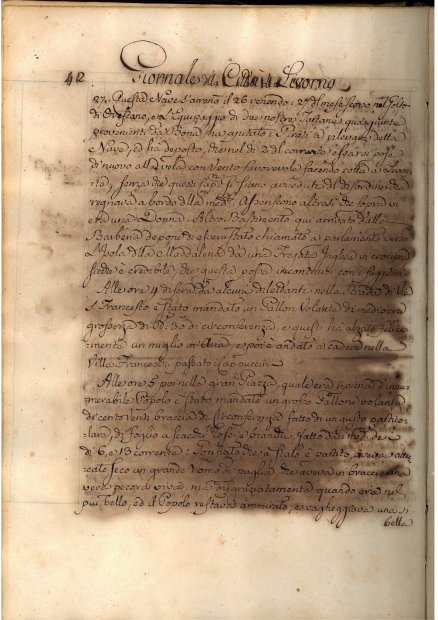 42
Giornale di Città di Livorno
27. Questa Nave s'arrenò il 26 venendo i 27 del mese scorso nel Golfo
di Oristano, e l'Equipaggio di due nostre Tartane qua giunte
provenienti da Bona ha ajutato i Pirati a
Nave, ed ha deposto, che nel dì 2 del corrente essersi posta
di nuovo alla vela con vento favorevole facendo rotta a
senza che questi Capit.ⁱ si sieno avveduti del disordine che
regnava a bordo della med.ᵃ Asseriscono altresì che sopra vi
era una Donna. Altro Bastimento qui arrivato dalla
Barberia depone di essere stato chiamato a parlamento verso
l'Isola della Maddalena da una Fregata Inglese in crociera
sicchè è credibile, che questa possa incontrarsi con i fuggitivi
Alle ore 4 di sera da alcuni dilettanti nella Strada di Via
S. Francesco è stato mandato un Pallon Volante di mediocre
grossezza di Bª. 30 di circonferenza e questi ha alzato felice-
mente un miglio in aria, e poi è andato a cadere nella
Villa Franceschi passato i Capuccini
Alle ore 6 poi nella gran Piazza, quale era ripiena d'innu-
merabile Popolo è stato mandato un grosso Pallone volante
di cento venti braccia di circonferenza fatto di un gusto particolare,
di Foglio a scacchi rossi, e bianchi fatto da i med.ⁱ de
di 6, e 10 corrente: Gonfiato che è stato e partito, aveva attac-
cato seco un grande Uomo di paglia che aveva in braccio una
pecora viva, ma disgraziatamente quando era nel
più bello, ed il Popolo restava ammirato, e vagheggiava una sì
bella